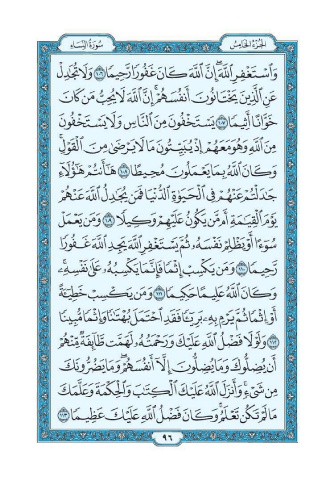 الجزء الخامس
سورة النساء
وَٱسْتَغْفِرِ ٱللَّهَ إِنَّ ٱللَّهَ كَانَ غَفُورًا رَّحِيمًا ١٠٦ وَلَا تُجَٰدِلْ
عَنِ ٱلَّذِينَ يَخْتَانُونَ أَنفُسَهُمْ إِنَّ ٱللَّهَ لَا يُحِبُّ مَن كَانَ
خَوَّانًا أَثِيمًا ١٠٧ يَسْتَخْفُونَ مِنَ ٱلنَّاسِ وَلَا يَسْتَخْفُونَ
مِنَ ٱللَّهِ وَهُوَ مَعَهُمْ إِذْ يُبَيِّتُونَ مَا لَا يَرْضَىٰ مِنَ ٱلْقَوْلِ
وَكَانَ ٱللَّهُ بِمَا يَعْمَلُونَ مُحِيطًا ١٠٨ هَٰٓأَنتُمْ هَٰٓؤُلَآءِ
جَٰدَلْتُمْ عَنْهُمْ فِى ٱلْحَيَوٰةِ ٱلدُّنْيَا فَمَن يُجَٰدِلُ ٱللَّهَ عَنْهُمْ
يَوْمَ ٱلْقِيَٰمَةِ أَم مَّن يَكُونُ عَلَيْهِمْ وَكِيلًا ١٠٩ وَمَن يَعْمَلْ
سُوٓءًا أَوْ يَظْلِمْ نَفْسَهُۥ ثُمَّ يَسْتَغْفِرِ ٱللَّهَ يَجِدِ ٱللَّهَ غَفُورًا
رَّحِيمًا ١١٠ وَمَن يَكْسِبْ إِثْمًا فَإِنَّمَا يَكْسِبُهُۥ عَلَىٰ نَفْسِهِۦ
وَكَانَ ٱللَّهُ عَلِيمًا حَكِيمًا ١١١ وَمَن يَكْسِبْ خَطِيٓـَٔةً
أَوْ إِثْمًا ثُمَّ يَرْمِ بِهِۦ بَرِيٓـًٔا فَقَدِ ٱحْتَمَلَ بُهْتَٰنًا وَإِثْمًا مُّبِينًا
١١٢ وَلَوْلَا فَضْلُ ٱللَّهِ عَلَيْكَ وَرَحْمَتُهُۥ لَهَمَّت طَّآئِفَةٌ مِّنْهُمْ
أَن يُضِلُّوكَ وَمَا يُضِلُّونَ إِلَّآ أَنفُسَهُمْ وَمَا يَضُرُّونَكَ
مِن شَىْءٍ وَأَنزَلَ ٱللَّهُ عَلَيْكَ ٱلْكِتَٰبَ وَٱلْحِكْمَةَ وَعَلَّمَكَ
مَا لَمْ تَكُن تَعْلَمُ وَكَانَ فَضْلُ ٱللَّهِ عَلَيْكَ عَظِيمًا ١١٣
٩٦